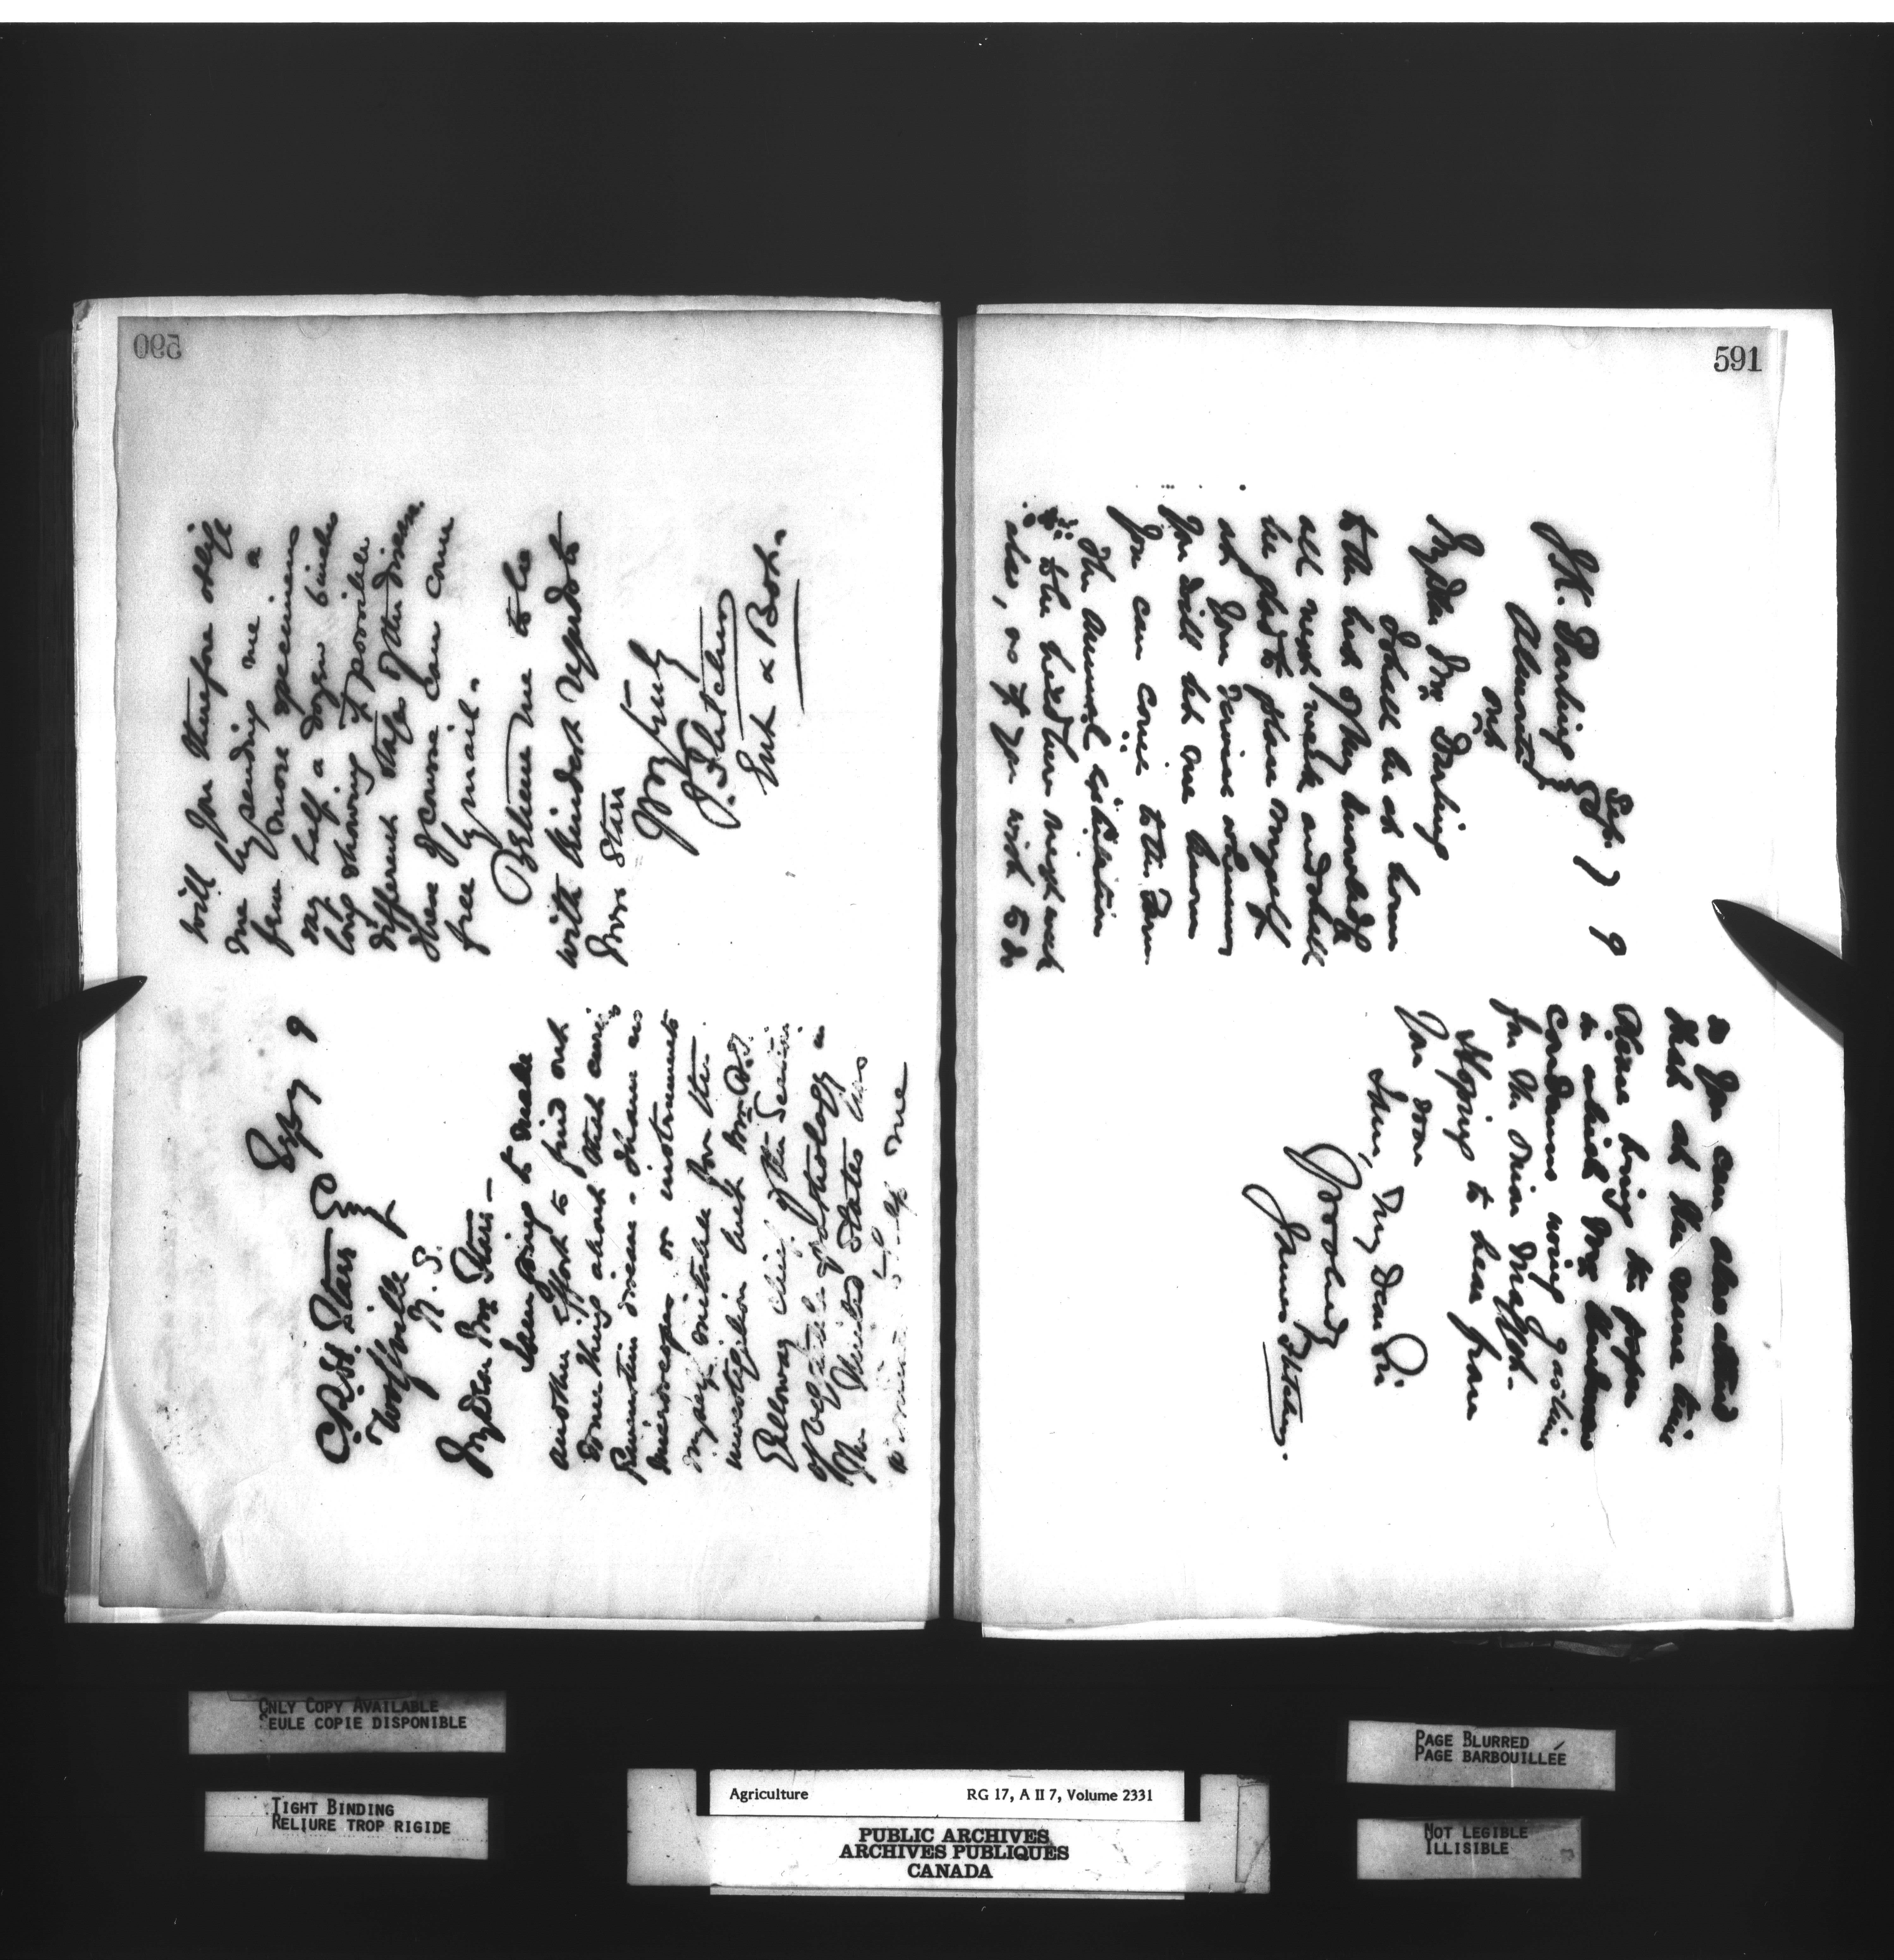 590
Sep 7 9
C R H Starr Esq
Wolfville
N.S.
My Dear Mr Starr -
I am going to make
another effort to find out
something about that curious
disease - I have no
microscopes or instruments
myself suitable for the
investigation but Mr B.T.
Galloway chief of the Section
of Vegetable Pathology in
The United States has
to help me
will you therefore oblige
me by sending me a
few more specimens
say half a dozen
long showing if possible
different stages of the disease.
These of course can come
free by mail.
Believe me to be
with kindest regards to
Mrs Starr
Yrs truly
J. Fletcher
Ent & Bot.
591
Sep 7 9
J.K. Darling Esq
Almonte
Ont
My Dear Mr Darling
I shall be at home
to the best of my knowledge
all next week and shall
be glad to place myself
at your service whenever
you will let me know
you can come to the Farm
The Annual exhibition
to be held here next week
also, so if you wish to do
so you can also attend
that at the same time
Please bring the paper
in which Mr
condemns using gasoline
for the
Hoping to hear from
you soon
I am, My Dear Sir
Yrs truly
James Fletcher.
ONLY COPY AVAILABLE
SEULE COPIE DISPONIBLE
TIGHT BINDING
RELIURE TROP RIGIDE
Agriculture RG 17, A II 7, Volume 2331
PUBLIC ARCHIVES
ARCHIVES PUBLIQUES
CANADA
PAGE BLURRED
PAGE BARBOUILLÉE
NOT LEGIBLE
ILLISIBLE